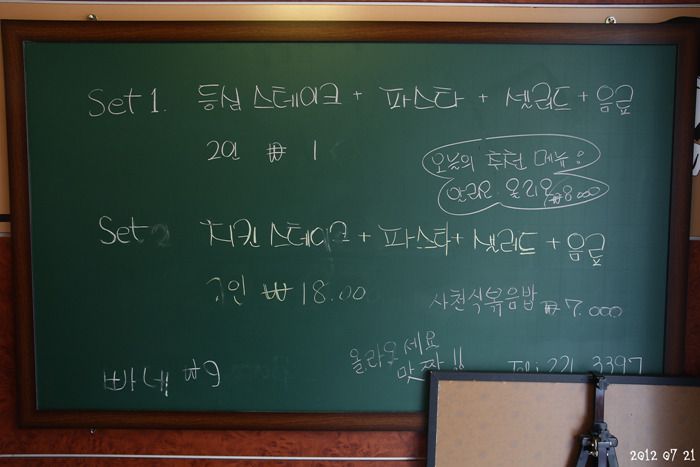 Set 1. 등심 스테이크 + 파스타 + 샐러드 + 음료
2인 ₩ 1
오늘의 추천 메뉴 :
알리오 올리오 ₩8.000
Set 2 치킨 스테이크 + 파스타 + 샐러드 + 음료
2인 ₩ 18.00
사천식볶음밥 ₩7.000
올라오세요
맛짱!!
Tel: 221 3397
빠네 ₩9
2012 07 21